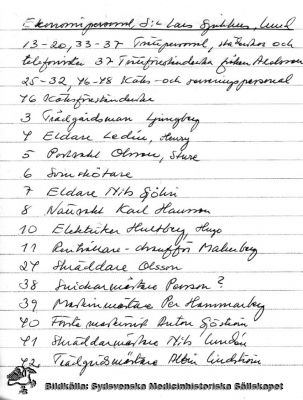 Ekonomipersonal, S:t Lars Sjukhus, Lund
13-20, 33-37 Tvättpersonal, städerskor och
telefonister 37 Tvättföreståndarska fröken Akelsson
25-32, 46-48 Köks- och serveringspersonal
46 Köksföreståndarska
3 Trädgårdsman Ljungberg
4 Eldare Ledin, Henry
5 Portvakt Olsson, Sture
6 Svinskötare
7 Eldare Nils Sjöhn
8 Nattvakt Karl Hansson
10 Elektriker Hultberg, Hugo
11 Renhållare- Malmberg
24 Skräddare Olsson
38 Snickarmästare Persson?
39 Maskinmästare Per Hammarberg
40 Förste maskinist Anton Sjöström
41 Skräddarmästare Nils Lundén
42 Trädgårdsmästare Albin Lindström
Bildkälla: Sydsvenska Medicinhistoriska Sällskapet